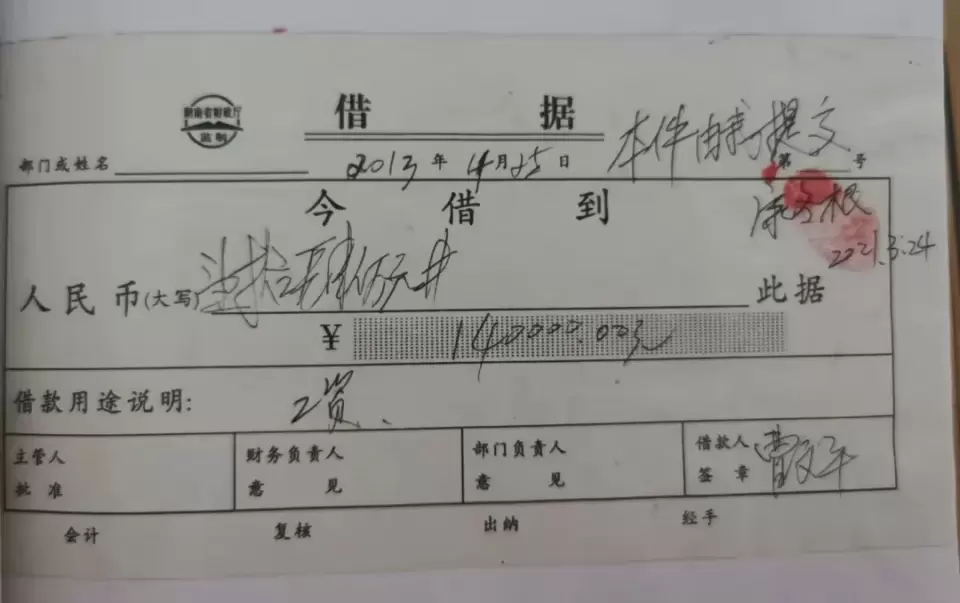 湖南省财政厅
监制
借据
部门或姓名 2013年4月25日 第 号
本件由我提交
今借到
2021.3.24
人民币(大写)壹拾肆万元 此据
¥ 140000.00元
借款用途说明: 工资、
主管人批准 财务负责人意见 部门负责人意见 借款人签章
会计 复核 出纳 经手